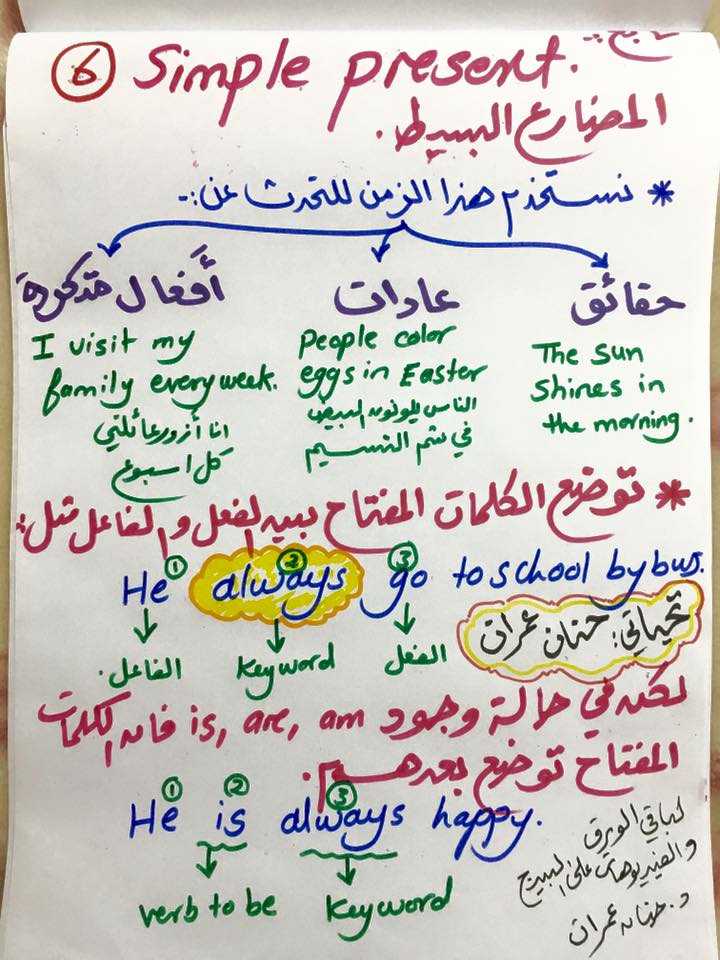 تابع:
6 Simple present.
المضارع البسيط.
* نستخدم هذا الزمن للتحدث عن:-
حقائق
The Sun
Shines in
the morning.
عادات
People color
eggs in Easter
الناس يلونون البيض
في شم النسيم
أفعال متكررة
I visit my
family every week.
انا أزور عائلتي
كل اسبوع
* توضع الكلمات المفتاح بين الفعل والفاعل مثل:
1 2 3
He always go to school by bus.
الفاعل. Keyword الفعل
تحياتي: حنان عمران
لكن في حالة وجود is, are, am فان الكلمات
المفتاح توضع بعدهم.
1 2 3
He is always happy.
verb to be Keyword
لباقي الورق
والفيديوهات على البيج
د. حنان عمران